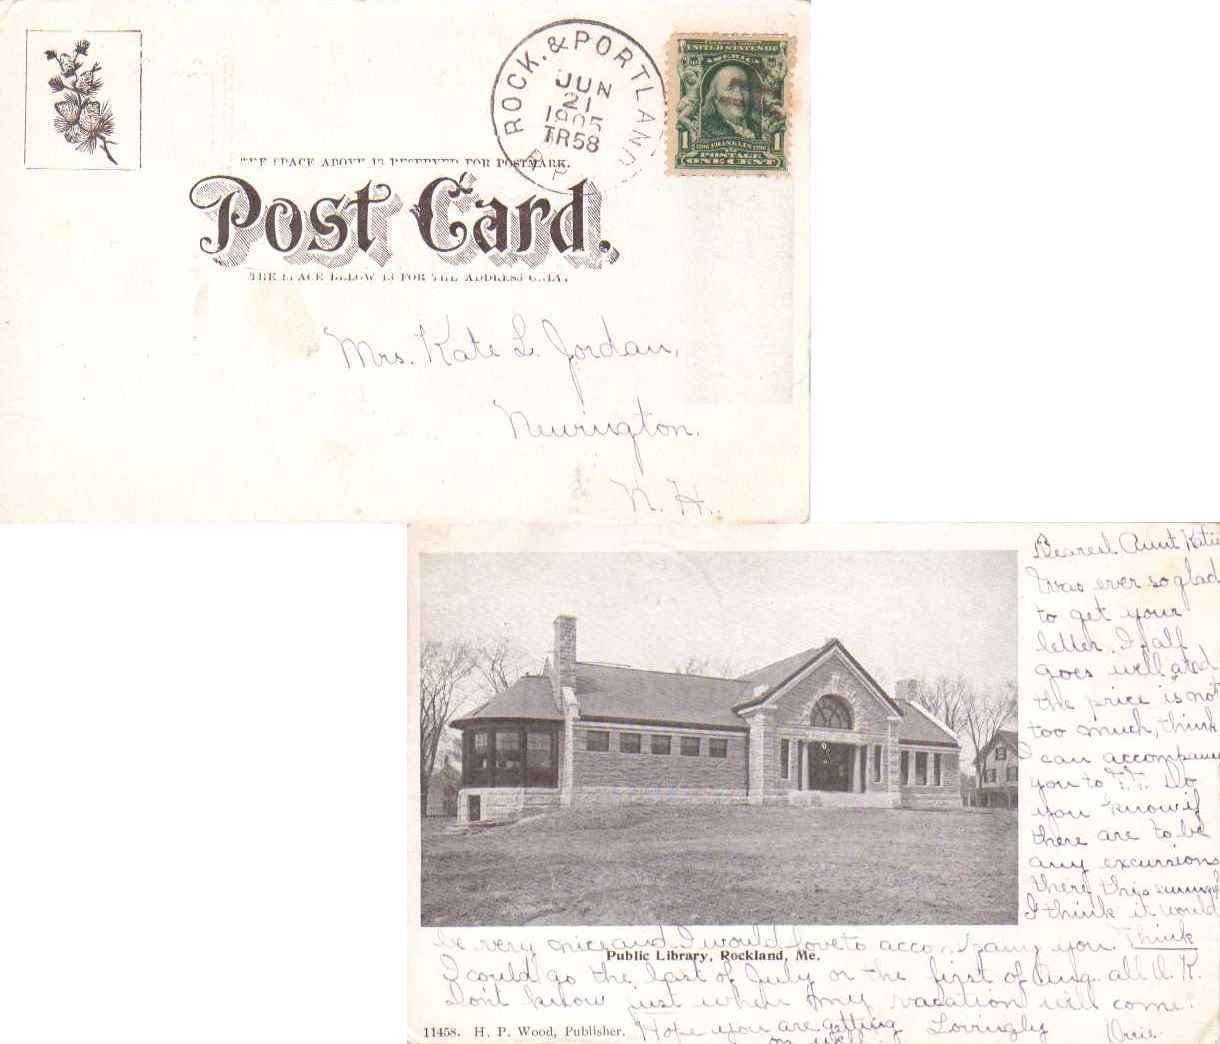 ROCK. & PORTLAND
R.P.
JUN
21
1905
TR58
UNITED STATES OF
AMERICA
1 FRANKLIN 1
POSTAGE
ONE CENT
THE SPACE ABOVE IS RESERVED FOR POSTMARK.
Post Card.
THE SPACE BELOW IS FOR THE ADDRESS ONLY.
Mrs. Kate L. Jordan,
Newington.
N. H.
Dearest Aunt Katie
Was ever so glad
to get your
letter. If all
goes well and
the price is not
too much, think
I can accompany
you to Do
you know if
there are to be
any excursions
there this summer
I think it would
be very nice and I would love to accompany you. Think
Public Library, Rockland, Me.
I could go the last of July or the first of Aug. all O.K.
Don't know just when my vacation will come.
11458. H. P. Wood, Publisher. Hope you are getting Lovingly
on well. Orrie